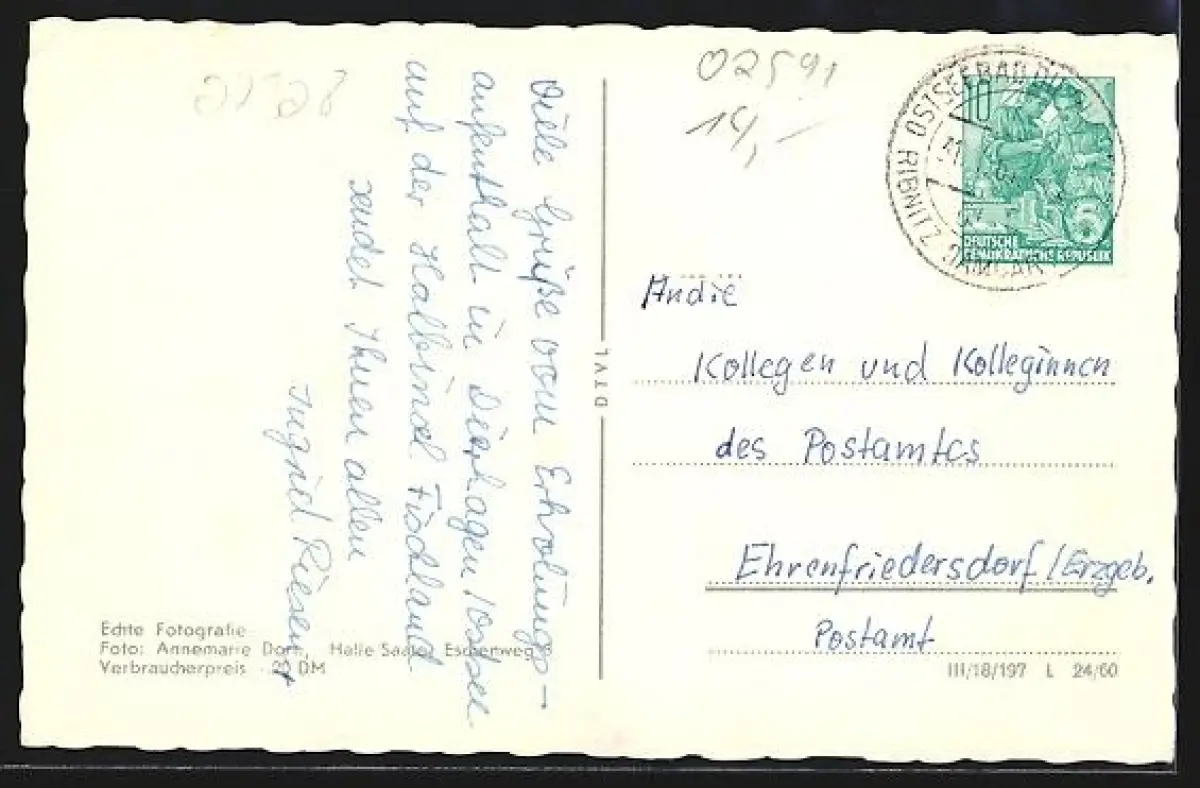 02591
14,-
10
DEUTSCHE
DEMOKRATISCHE REPUBLIK
OSTSEEBAD
RIBNITZ DAMGAR
Viele Grüße vom Erholungs-
aufenthalt in Dierhagen/Ostsee
auf der Halbinsel Fischland
sendet Ihnen allen
Ingrid
An die
Kollegen und Kolleginnen
des Postamtes
Ehrenfriedersdorf/Erzgeb.
Postamt
Echte Fotografie
Foto: Annemarie Halle Saale, Eschenweg 8
Verbraucherpreis DM
III/18/197 L 24/60